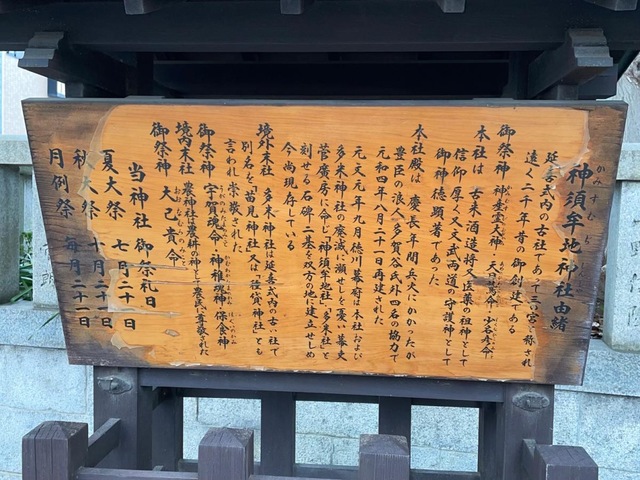 神須牟地神社由緒
かみすむぢ
延喜式内の古社であって三ノ宮と称され
遠く二千年昔の御創建である
御祭神 神産霊大神 天日鷲命 少名彦命
本社は 古来酒造将又医薬の祖神として
信仰厚く又文武両道の守護神として
御神徳顕著であった
本社殿は 慶長年間兵火にかかったが
豊臣の浪人多賀谷氏外四名の協力で
元和四年八月二十一日再建された
元文元年九月徳川幕府は本社および
多米神社の廃滅に瀕せしを憂い幕史
菅廣房に命じ「神須牟地社」「多米社」と
刻せる石碑一基を双方の地に建立せしめ
今尚現存している
境外末社 多米神社は延喜式内の古い社で
別名を「苗見神社」又は「種貸神社」とも
言われ崇敬された
御祭神 宇賀魂命 神稚瓊神 保食神
境内末社 農神社は農耕の神として農民に尊敬された
御祭神 大己貴命
おおなむちのみこと
当神社御祭礼日
夏大祭 七月二十日
秋大祭 十月二十二日
月例祭 毎月二十一日